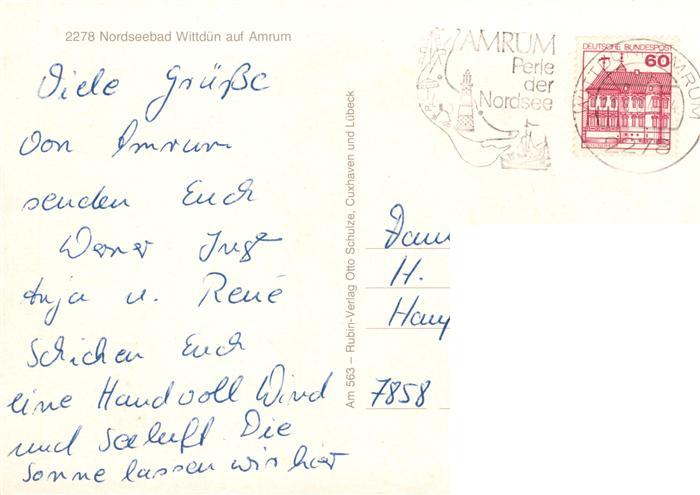 2278 Nordseebad Wittdün auf Amrum
Viele Grüße
von Amrum
senden Euch
Werner Inge
Anja u. René
Schicken Euch
eine Handvoll Wind
und Seeluft. Die
Sonne lassen wir hier
Am 563 – Rubin-Verlag Otto Schulze, Cuxhaven und Lübeck
AMRUM
Perle
der
Nordsee
DEUTSCHE BUNDESPOST
60
AMRUM
2278
H.
7858